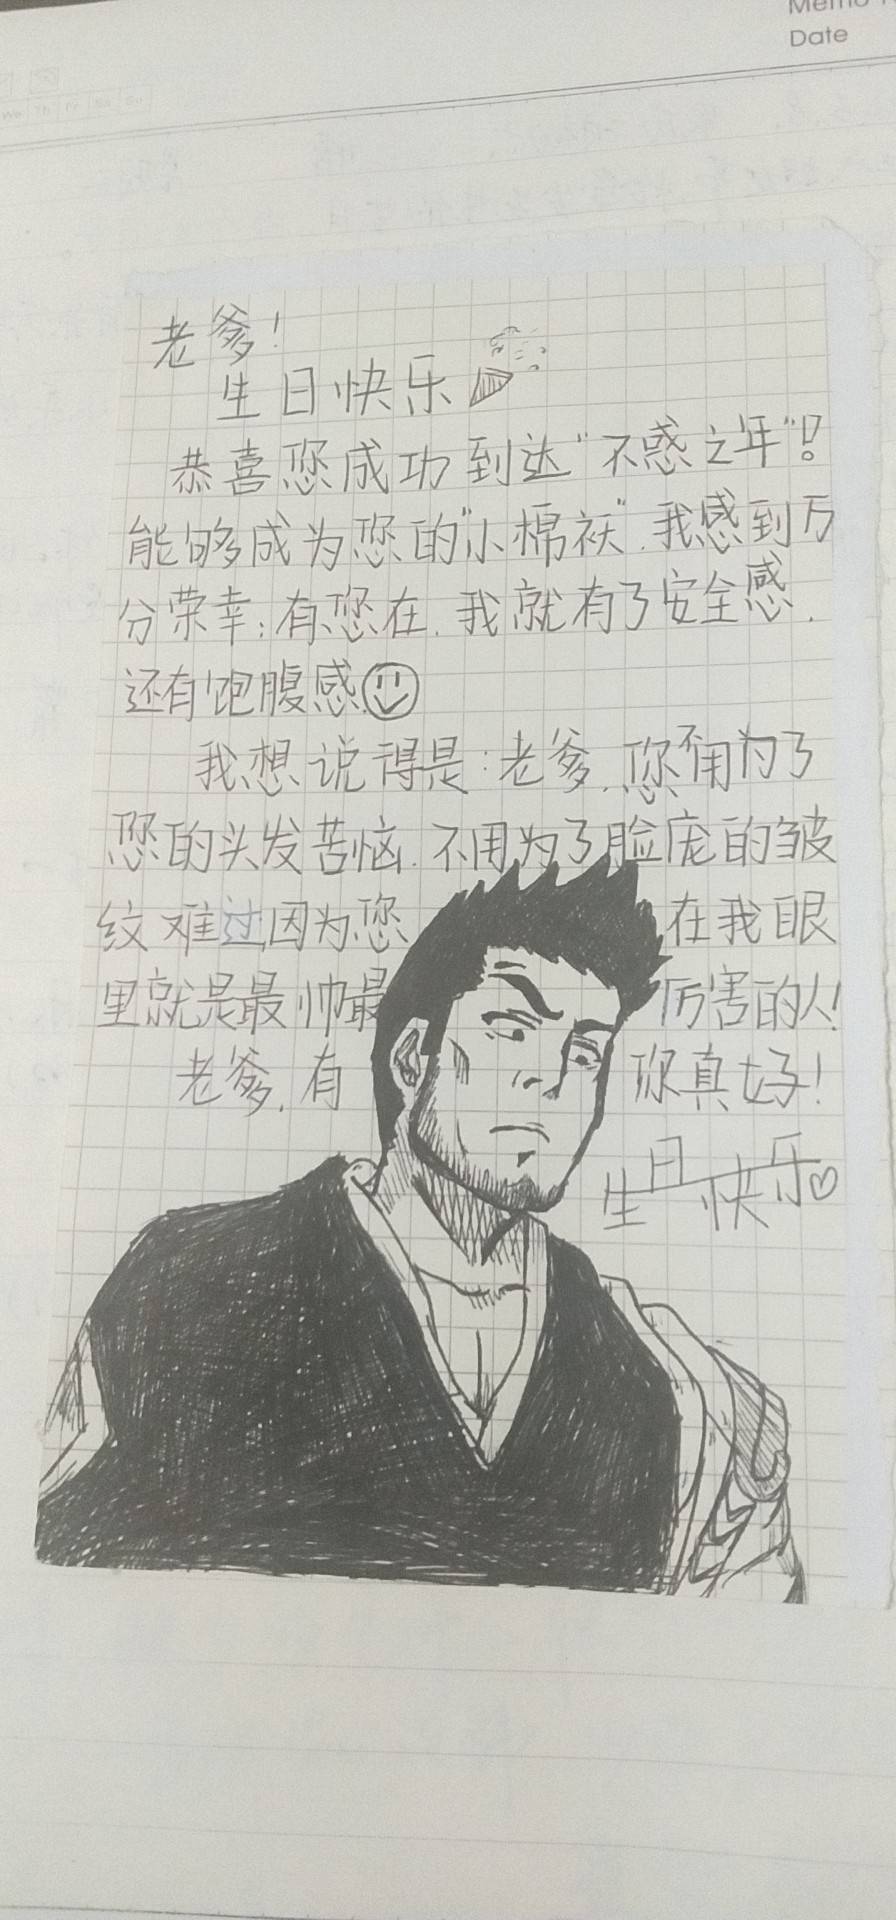 Memo
Date
We Th Fr Sa Su
老爹！
生日快乐
恭喜您成功到达“不惑之年”！
能够成为您的“小棉袄”，我感到万
分荣幸；有您在，我就有了安全感，
还有饱腹感
我想说得是：老爹，您不用为了
您的头发苦恼，不用为了脸庞的皱
纹难过，因为您在我眼
里就是最帅最厉害的人！
老爹，有你真好！
生日快乐♡